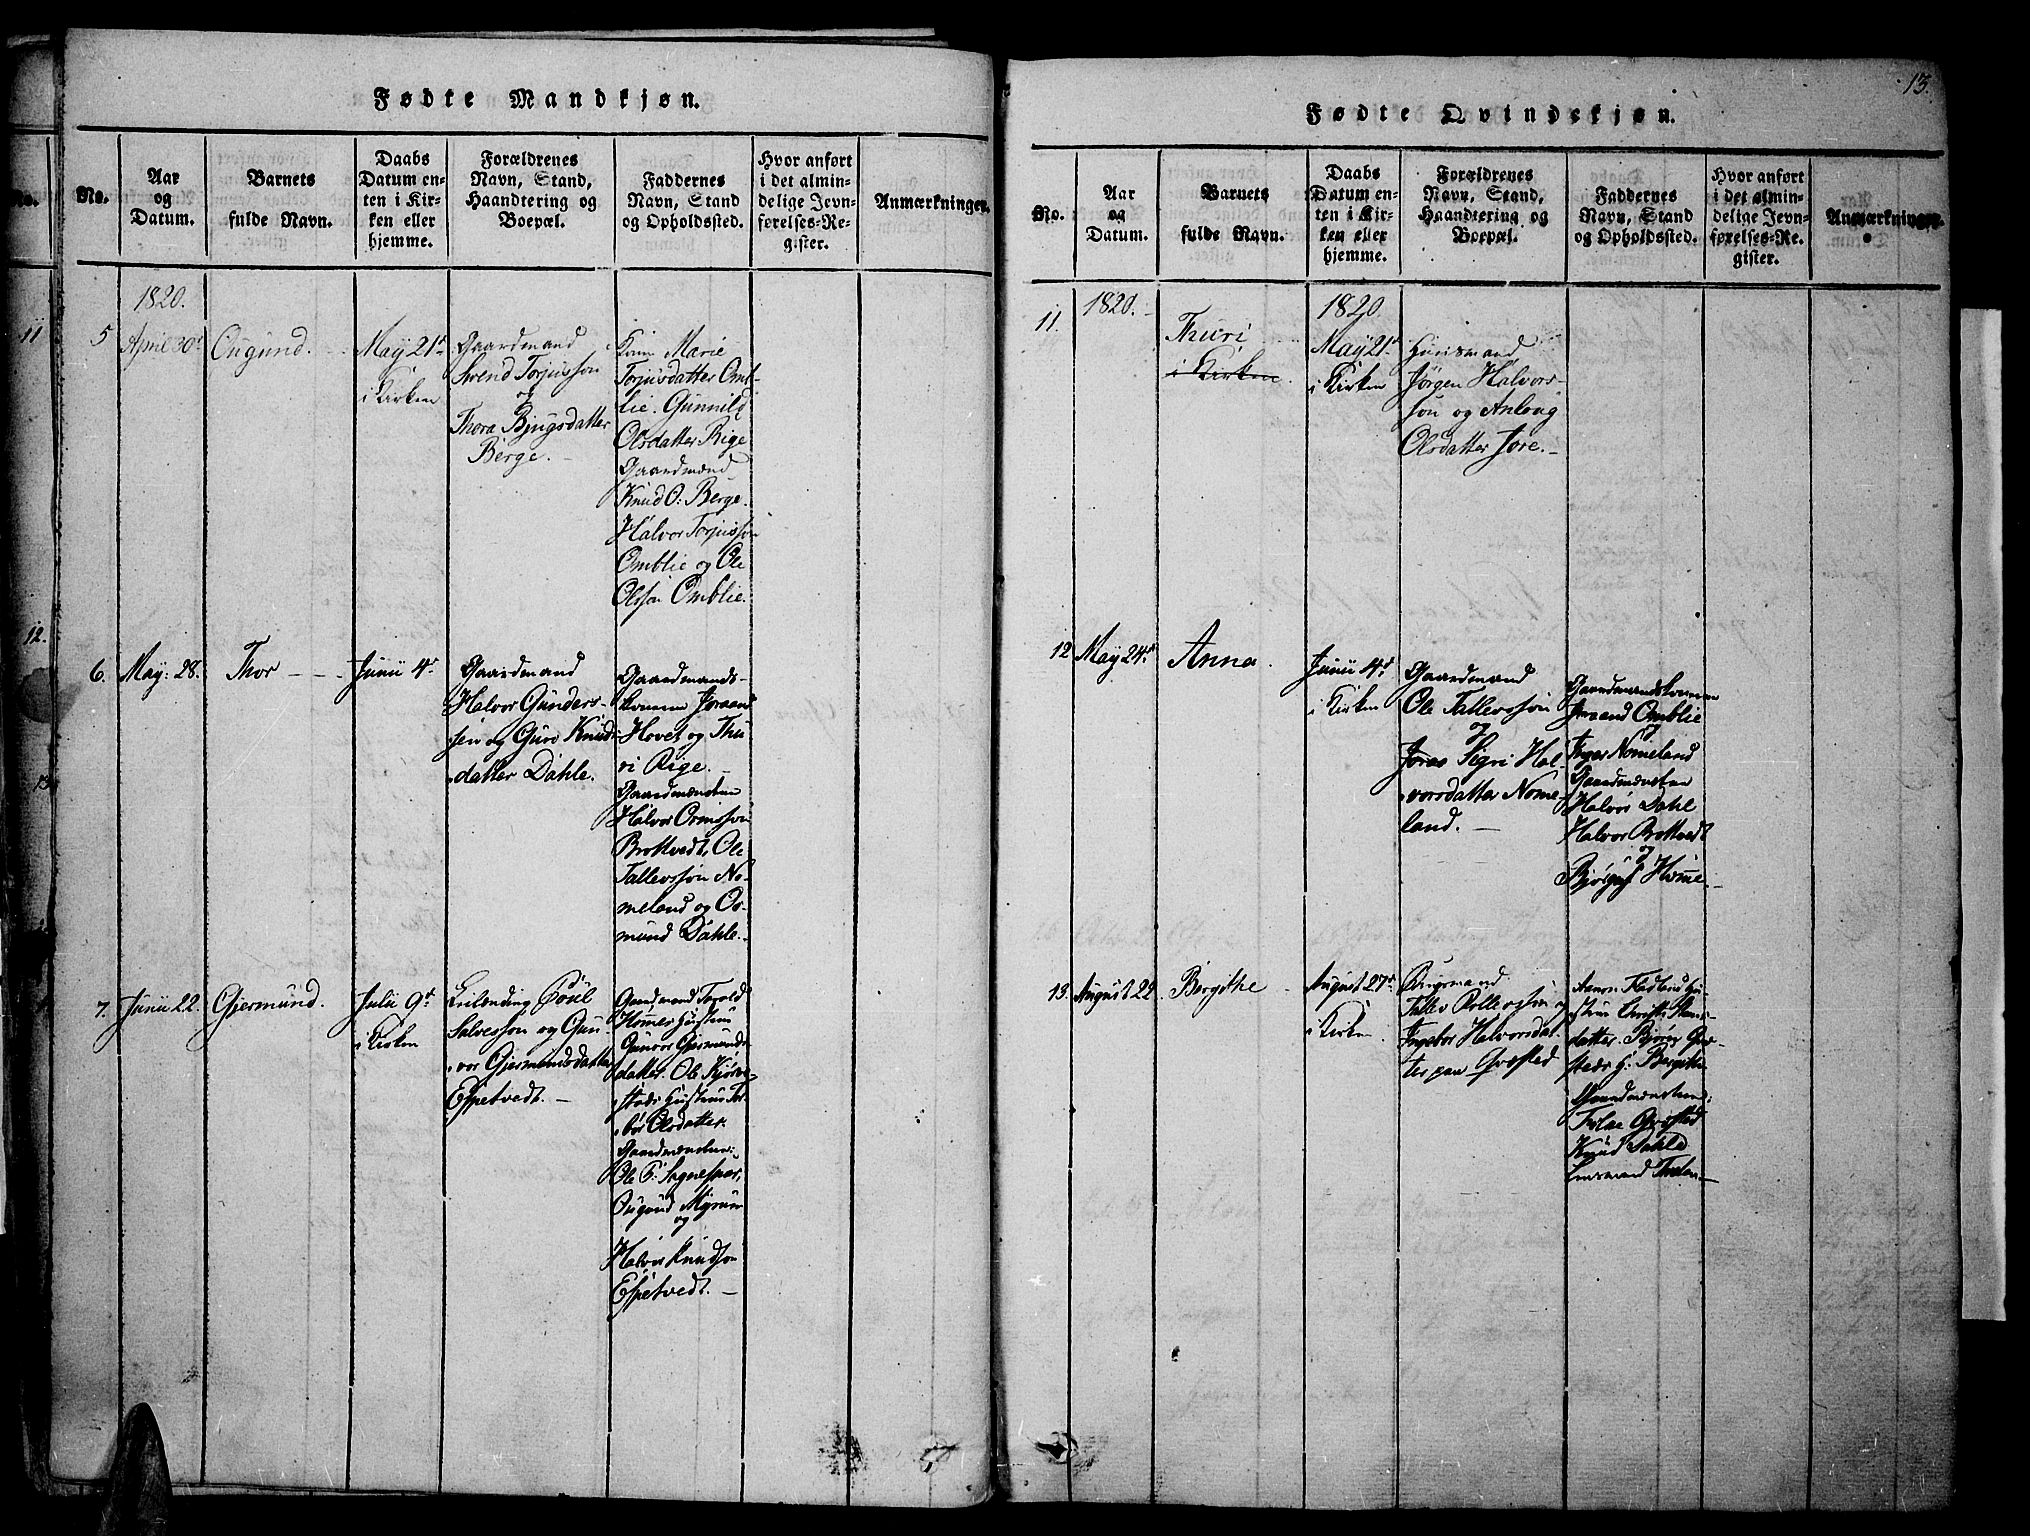 Fødte Mandkjøn.
No.
Aar
og
Datum.
Barnets
fulde Navn.
Daabs
Datum en-
ten i Kir-
ken eller
hjemme.
Forældrenes
Navn, Stand,
Haandtering og
Boepæl.
Faddernes
Navn, Stand
og Opholdssted.
Hvor anført
i det almin-
delige Jevn-
førelses-Re-
gister.
Anmærkninger.
11
12.
13
1820.
5
April 30t
Ougund.
May 21t
i Kirken
Gaardmand
Svend Torjusson
og
Thora Bjugsdatter
Berge.
Marie
Torjusdatter Omb-
lie. Gunnild
Olsdatter Rige
Gaardmænd
Knud O: Berge.
Halvor Torjusson
Omblie og Ole
Olsson Omblie.
6.
May: 28.
Thor
Junii 4t
Gaardmand
Halvor Gunders-
søn og Guro Knuds-
datter Dahle.
Gaardmands-
konerne Joraand
Hovet og Thu-
ri Rige.
Gaardmændene
Halvor Ormsson
Brottvedt, Ole
Tallevsson No-
meland og Os-
mund Dahle.
7.
Junii 22.
Gjermund.
Julii 9t
i Kirken
Leilending Poul
Salvesson og Gun-
vor Gjermundsdatter
Espetvedt.
Gaardmand Torold
Homes Hustrue
Gunvor Gjermunds-
datter. Ole
Hustrue Tor-
bor Olsdatter.
Gaardmændene:
Ole
Ougund Myrum
og
Halvor Knudson
Espetvedt.
13.
Fødte Qvindekjøn.
No.
Aar
og
Datum.
Barnets
fulde Navn.
Daabs
Datum en-
ten i Kir-
ken eller
hjemme.
Forældrenes
Navn, Stand,
Haandtering og
Boepæl.
Faddernes
Navn, Stand
og Opholdssted.
Hvor anført
i det almin-
delige Jevn-
førelses-Re-
gister.
Anmærkninger.
11.
1820.
Thuri
i Kirken
1820.
May 21t
i Kirken
Huusmand
Jørgen Halvors-
søn og Anlaug
Olsdatter Jore.
12
May 24t
Anna.
Junii 4t
i Kirken
Gaardmand
Ole Tallevssøn
og
Joras Sigri Hal-
vorsdatter Nome-
land.
Gaardmandskonerne
Joraand Omblie
og
Inger Nomeland
Gaardmændene
Halvor Dahle
Halvor Brottvedt
og
Bjørgus Home
13.
August 22
Bergithe
August 27t
i Kirken
Tallev
Ingebor Halvorsdat-
ter paa Grøsted
datter. Bjørn
H: Bergithe
Gaardmændene:
Grøsted
Knud Dahle
Lensmand